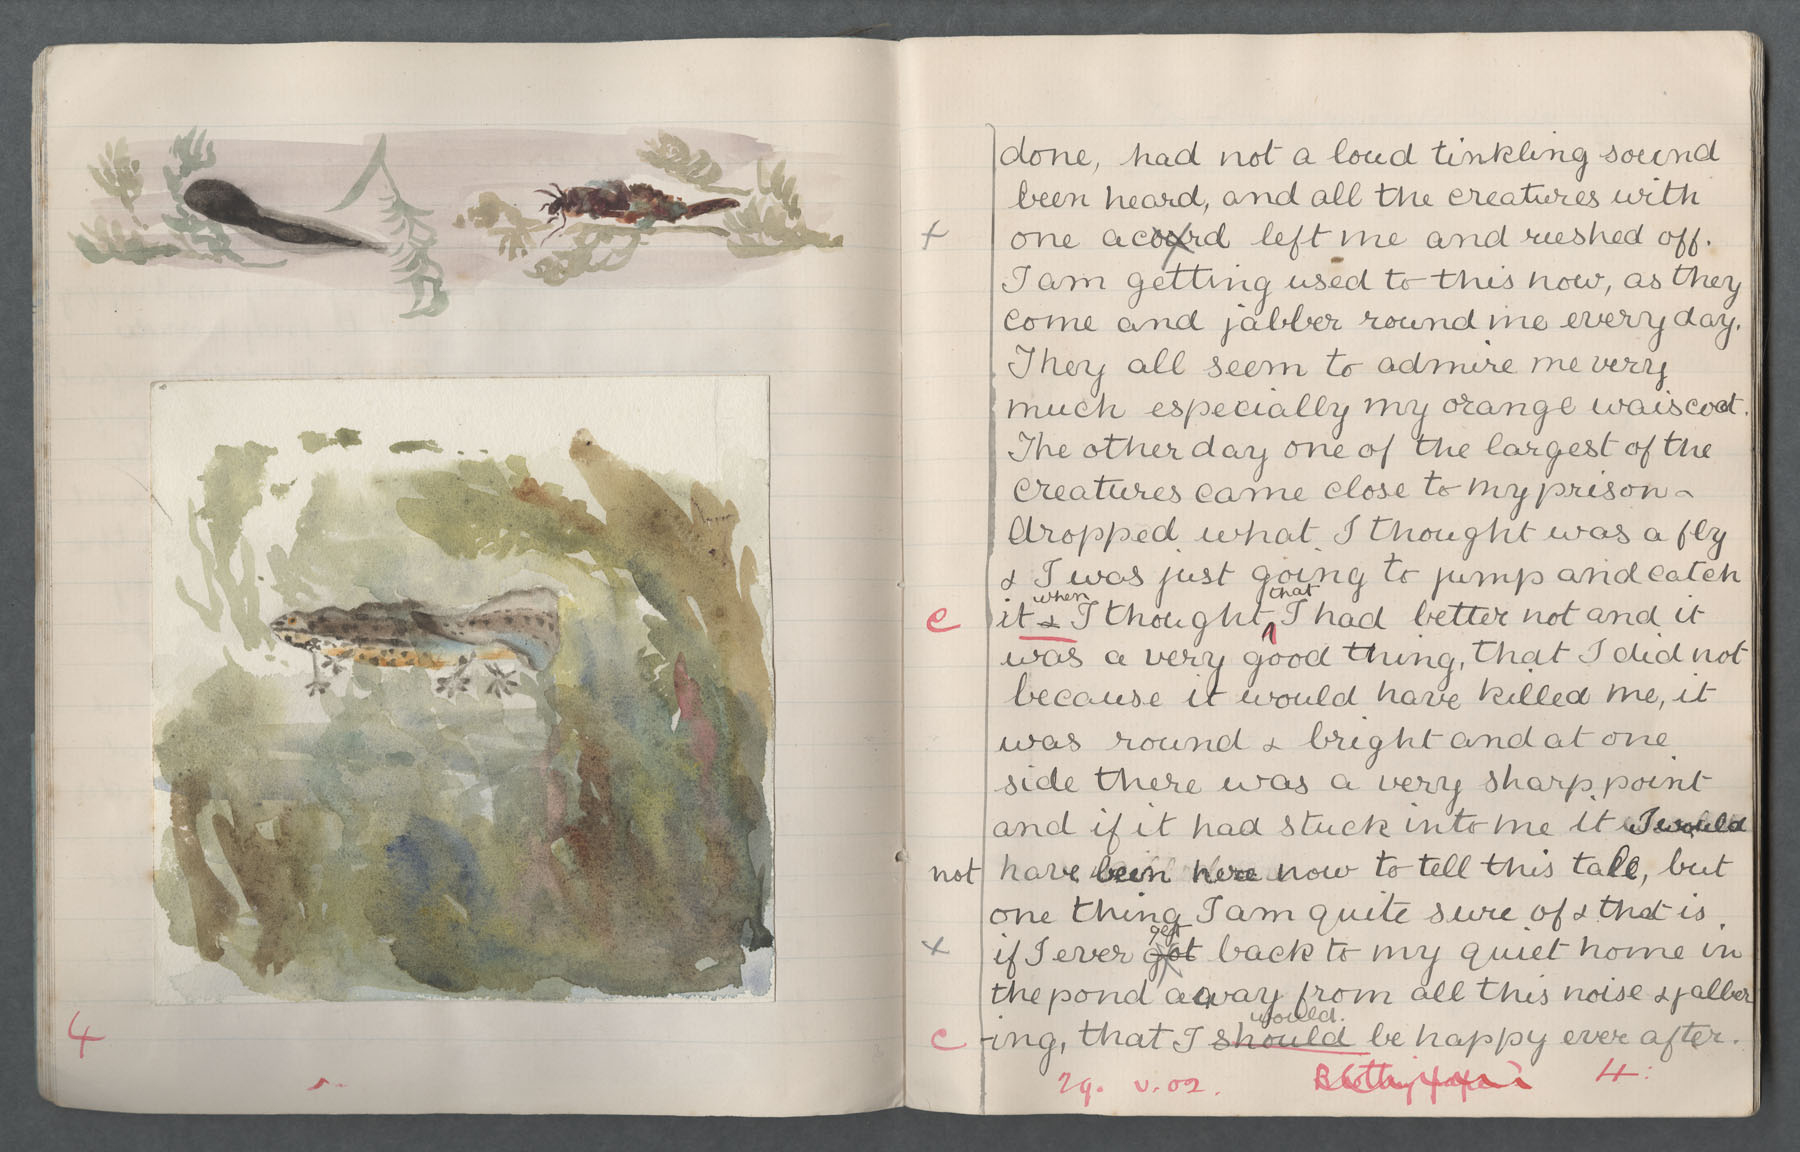 4
done, had not a loud tinkling sound
been heard, and all the creatures with
+ one acord left me and rushed off.
I am getting used to this now, as they
come and jabber round me every day.
They all seem to admire me very
much especially my orange waiscoat.
The other day one of the largest of the
creatures came close to my prison &
dropped what I thought was a fly
& I was just going to jump and catch
when that
c it & I thought I had better not and it
was a very good thing, that I did not
because it would have killed me, it
was round & bright and at one
side there was a very sharp point
and if it had stuck into me it I would
not have been here now to tell this tale, but
one thing I am quite sure of & that is
get
+ if I ever got back to my quiet home in
the pond away from all this noise & jabber
would.
c -ing, that I should be happy ever after.
29. v. 02. 4